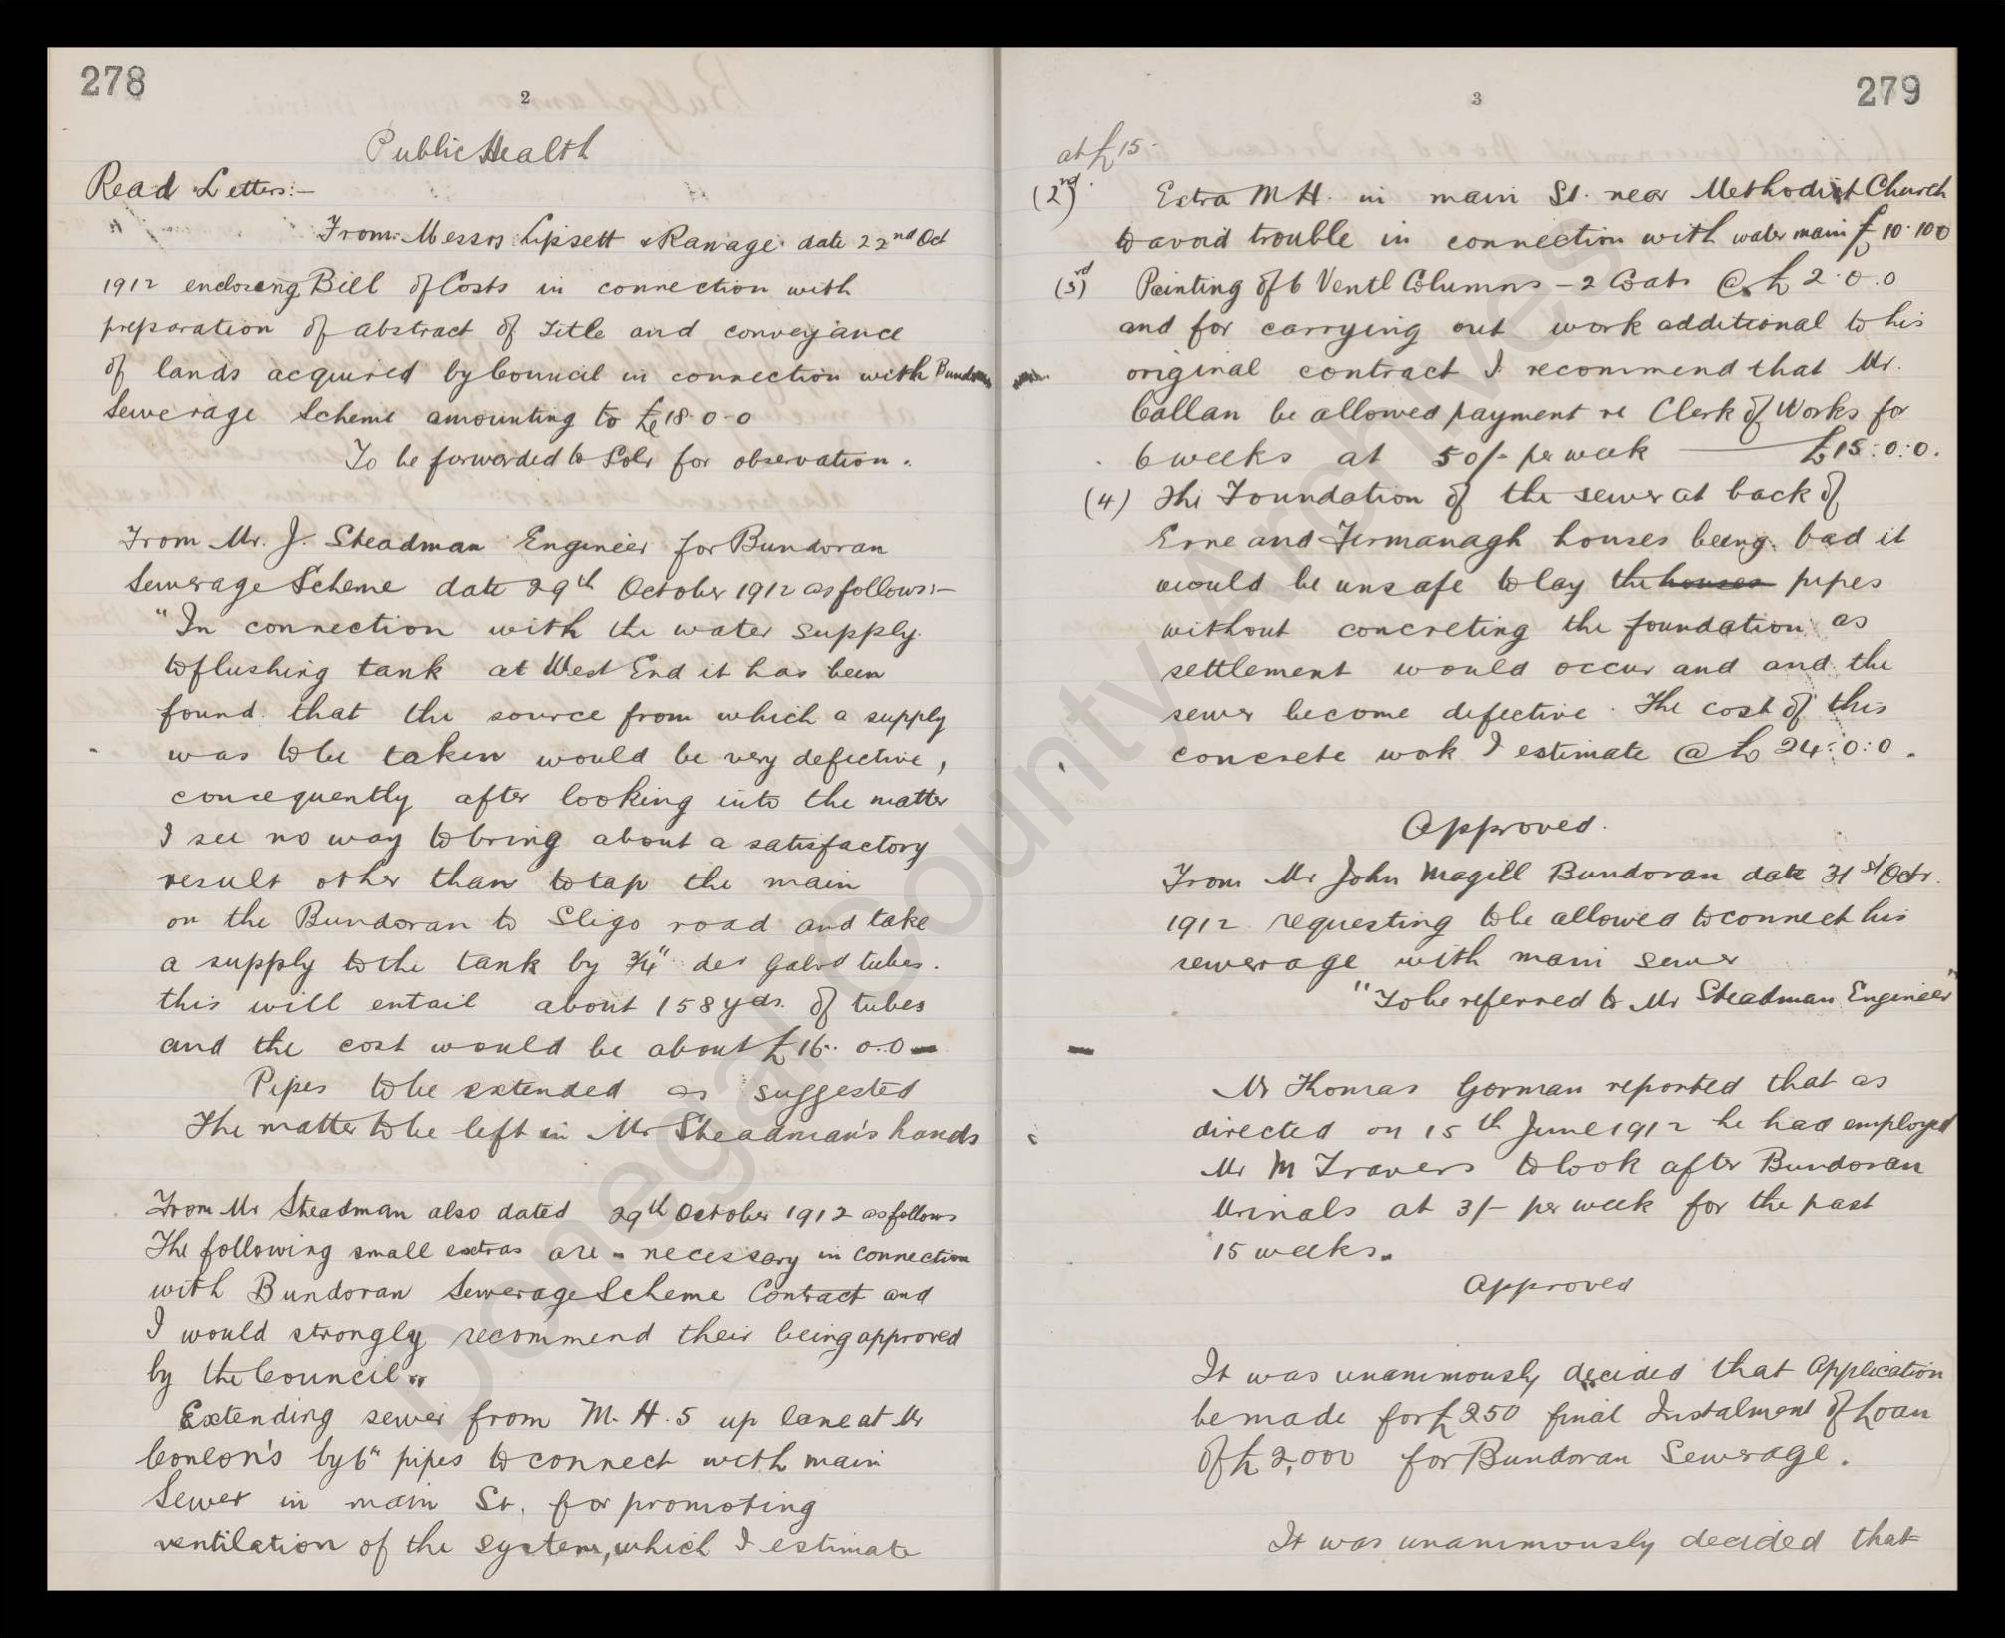 278
2
Public Health
Read Letters:-
From Messrs Lipsett & Ramage date 22nd Oct
1912 enclosing Bill of Costs in connection with
preparation of abstract of Title and conveyance
of lands acquired by Council in connection with Bundoran
Sewerage Scheme amounting to £18-0-0
To be forwarded to Solr for observation.
From Mr. J. Steadman Engineer for Bundoran
Sewerage Scheme date 29th October 1912 as follows:-
"In connection with the water supply
to flushing tank at West End it has been
found that the source from which a supply
was to be taken would be very defective,
consequently after looking into the matter
I see no way to bring about a satisfactory
result other than to tap the main
on the Bundoran to Sligo road and take
a supply to the tank by 3/4" Galvd tubes.
this will entail about 158 yds. of tubes
and the cost would be about £16. 0.0
Pipes to be extended as suggested
The matter to be left in Mr Steadman's hands
From Mr Steadman also dated 29th October 1912 as follows
The following small extras are - necessary in connection
with Bundoran Sewerage Scheme Contract and
I would strongly recommend their being approved
by the Council.
Extending sewer from M. H. 5 up lane at Mr
Conlon's by 6" pipes to connect with main
Sewer in main St. for promoting
ventilation of the system, which I estimate
279
3
at £15.
(2nd) Extra M H. in main St. near Methodist Church
to avoid trouble in connection with water main £10.10 0
(3rd) Painting of 6 Ventl Columns - 2 Coats @ £2.0.0
and for carrying out work additional to his
original contract I recommend that Mr.
Callan be allowed payment re Clerk of Works for
6 weeks at 50/- per week — £15:0:0.
(4) The Foundation of the sewer at back of
Erne and Fermanagh houses being bad it
would be unsafe to lay the houses pipes
without concreting the foundation as
settlement would occur and and the
sewer become defective. The cost of this
concrete work I estimate @ £24:0:0.
Approved.
From Mr John Magill Bundoran date 31st Octr.
1912 requesting to be allowed to connect his
sewerage with main sewer
"To be referred to Mr Steadman Engineer"
Mr Thomas Gorman reported that as
directed on 15th June 1912 he had employed
Mr M Travers to look after Bundoran
Urinals at 3/- per week for the past
15 weeks.
Approved
It was unanimously decided that Application
be made for £250 final Instalment of Loan
of £2,000 for Bundoran Sewerage.
It was unanimously decided that
Donegal County Archives